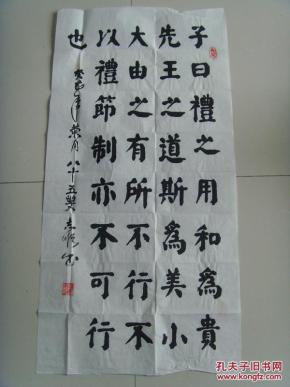 子曰禮之用和爲貴
先王之道斯爲美小
大由之有所不行不
以禮節制亦不可行
也
八十五叟
孔夫子旧书网